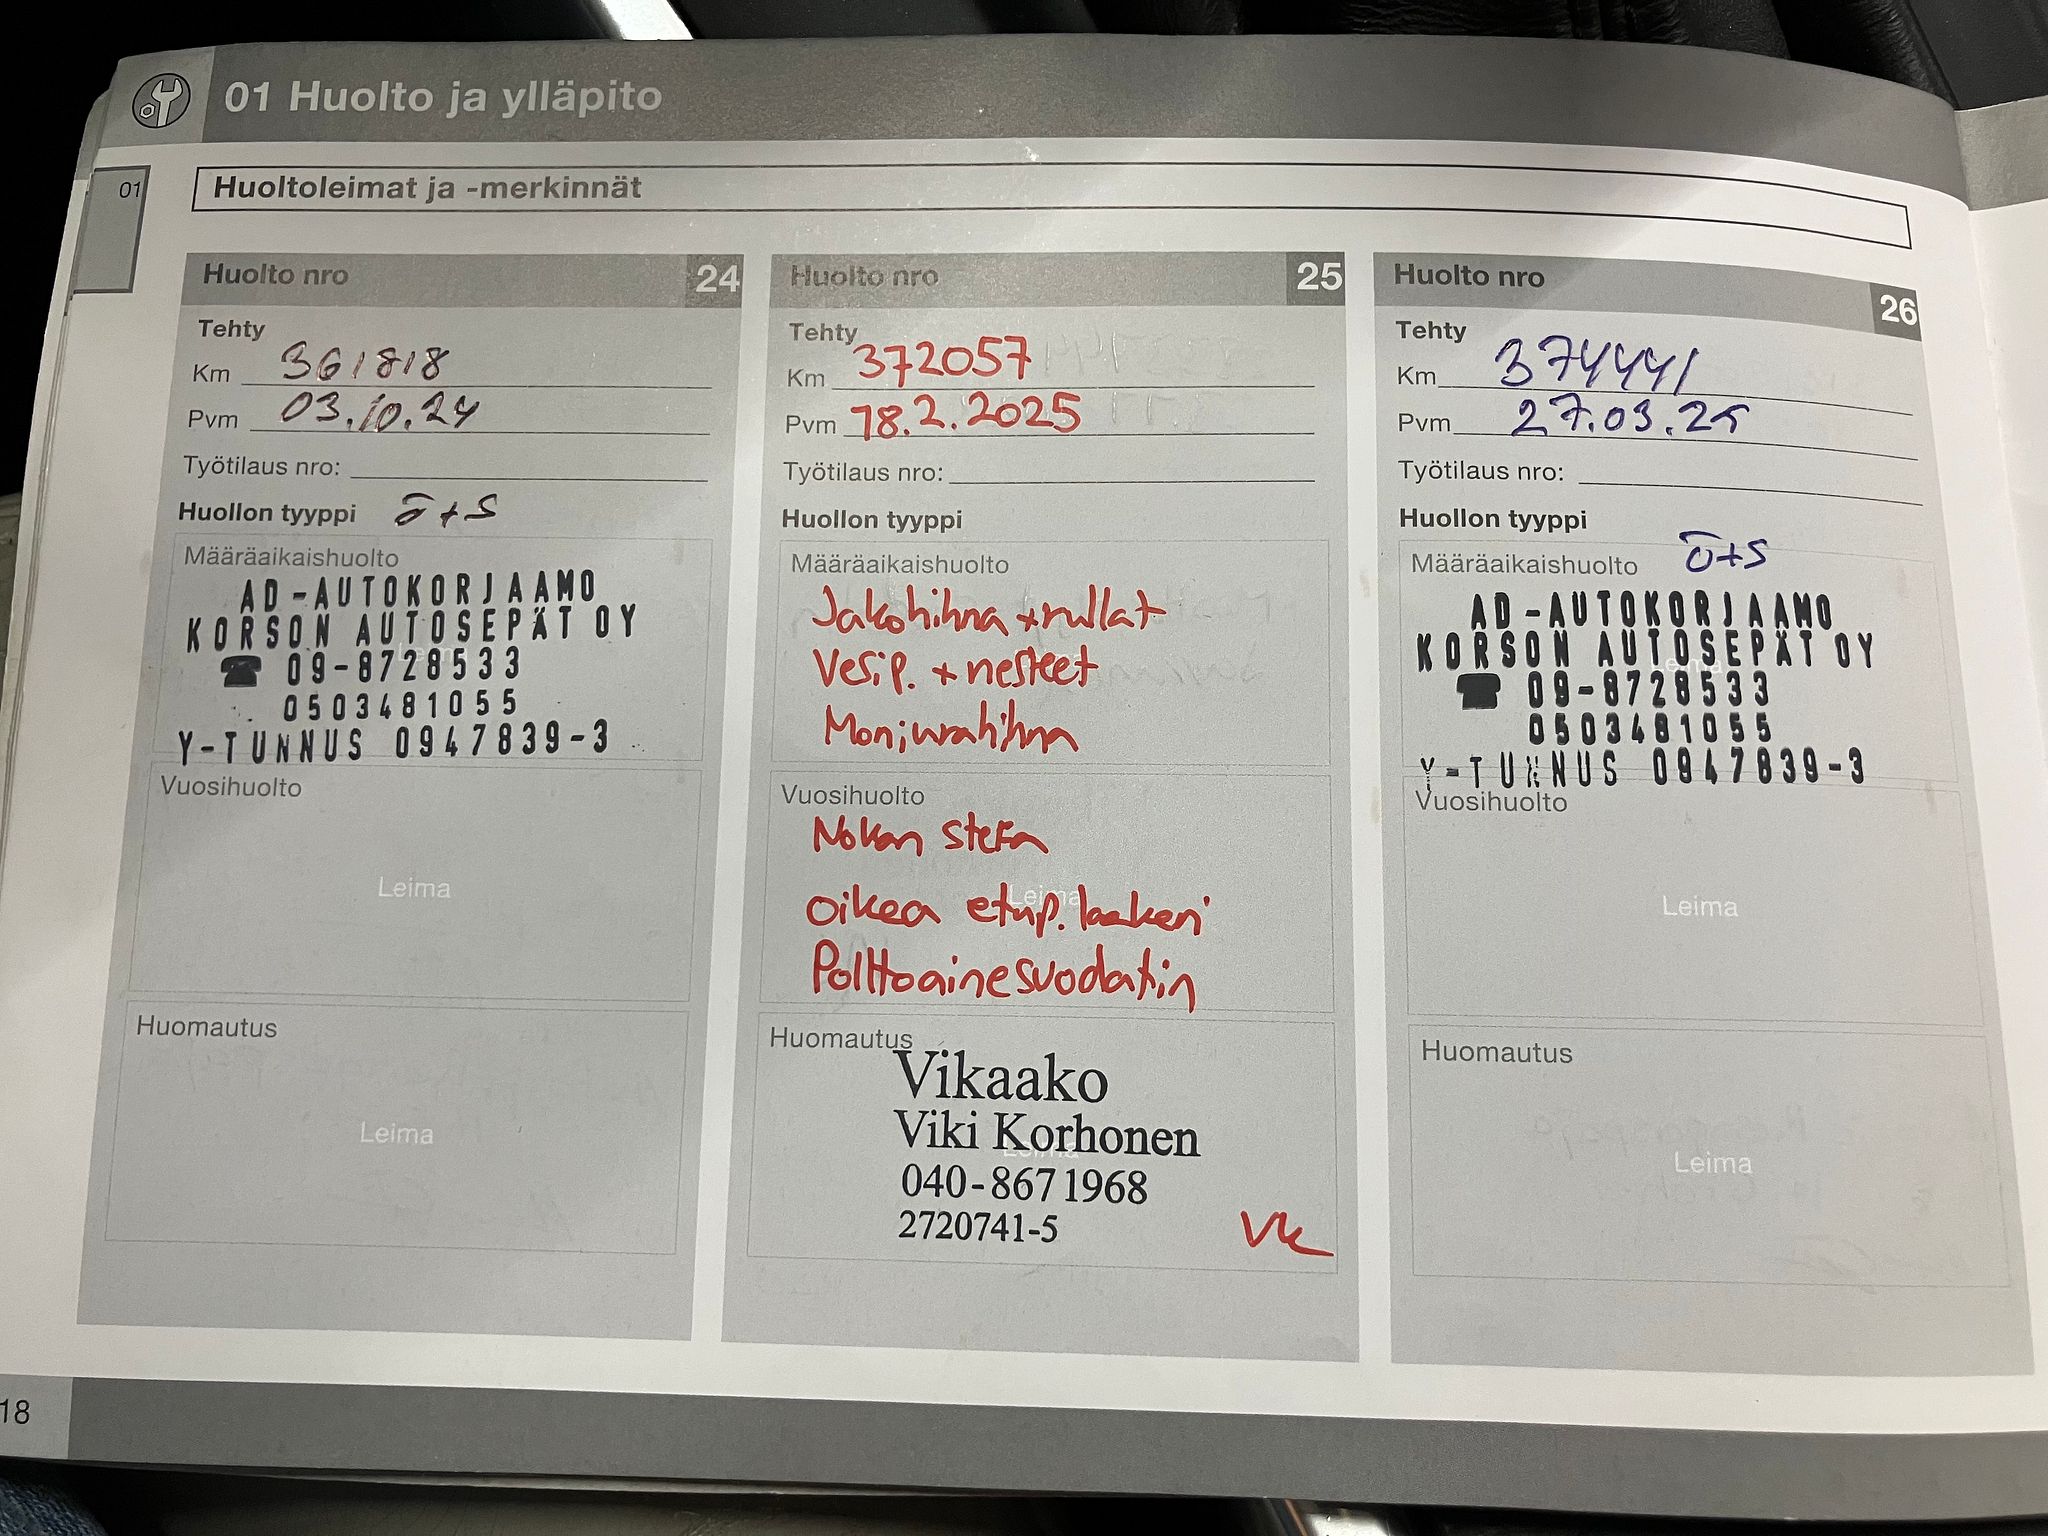 01 Huolto ja ylläpito
01
Huoltoleimat ja -merkinnät
Huolto nro 24
Tehty
Km 361818
Pvm 03.10.24
Työtilaus nro:
Huollon tyyppi ö+s
Määräaikaishuolto
AD-AUTOKORJAAMO
KORSON AUTOSEPÄT OY
☎ 09-8728533
0503481055
Y-TUNNUS 0947839-3
Vuosihuolto
Leima
Huomautus
Leima
Huolto nro 25
Tehty
Km 372057
Pvm 18.2.2025
Työtilaus nro:
Huollon tyyppi
Määräaikaishuolto
Jakohihna + rullat
Vesip. + nesteet
Moniurahihna
Vuosihuolto
Nokan stefa
Leima
oikea etup. laakeri
Polttoainesuodatin
Huomautus
Vikaako
Viki Korhonen
Leima
040-8671968
2720741-5
VK
Huolto nro 26
Tehty
Km 374441
Pvm 27.03.25
Työtilaus nro:
Huollon tyyppi
Määräaikaishuolto ö+s
AD-AUTOKORJAAMO
KORSON AUTOSEPÄT OY
Leima
☎ 09-8728533
0503481055
Y-TUNNUS 0947839-3
Vuosihuolto
Leima
Huomautus
Leima
18